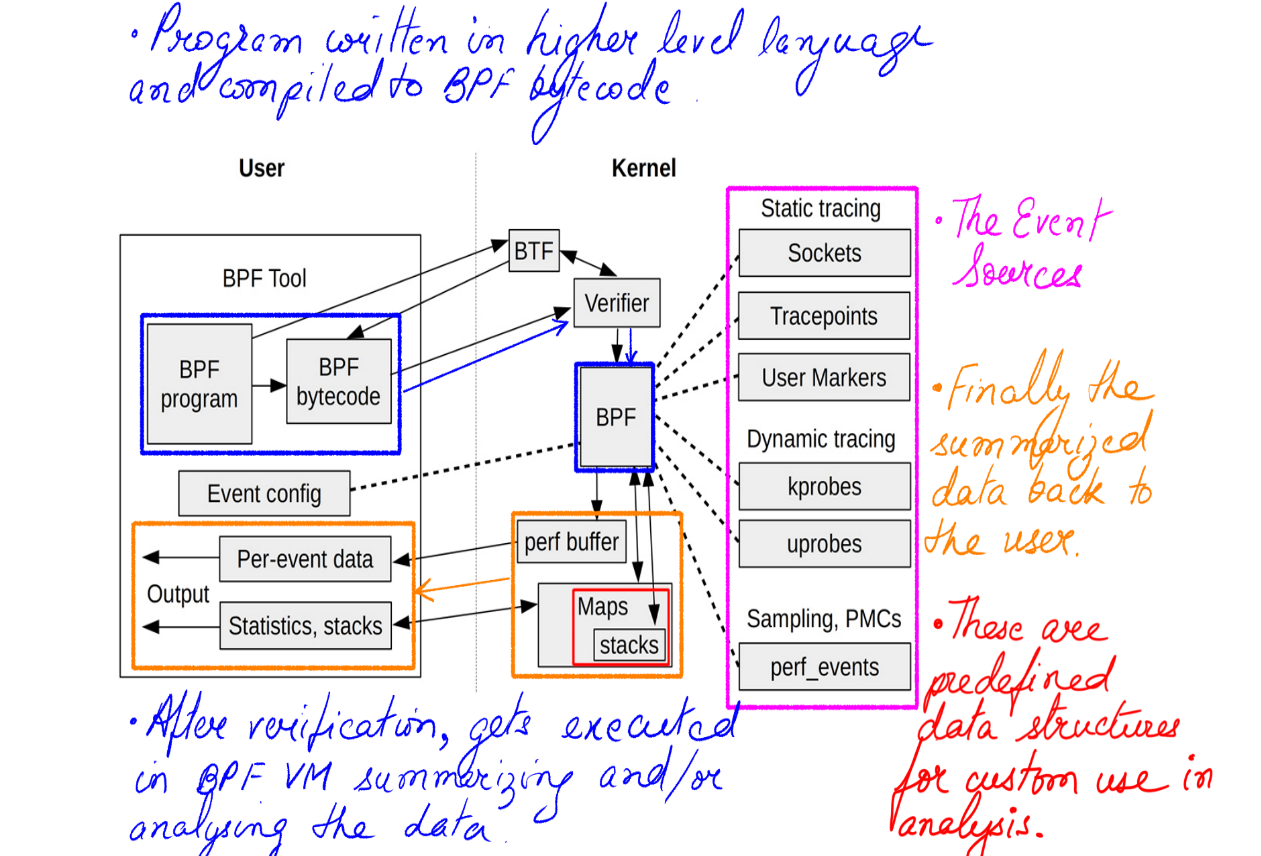 • Program written in higher level language
and compiled to BPF bytecode.
User
Kernel
BPF Tool
BPF
program
BPF
bytecode
Event config
Per-event data
Output
Statistics, stacks
BTF
Verifier
BPF
perf buffer
Maps
stacks
Static tracing
Sockets
Tracepoints
User Markers
Dynamic tracing
kprobes
uprobes
Sampling, PMCs
perf_events
• The Event
Sources
• Finally the
summarized
data back to
the user.
• These are
predefined
data structures
for custom use in
analysis.
• After verification, gets executed
in BPF VM summarizing and/or
analysing the data.